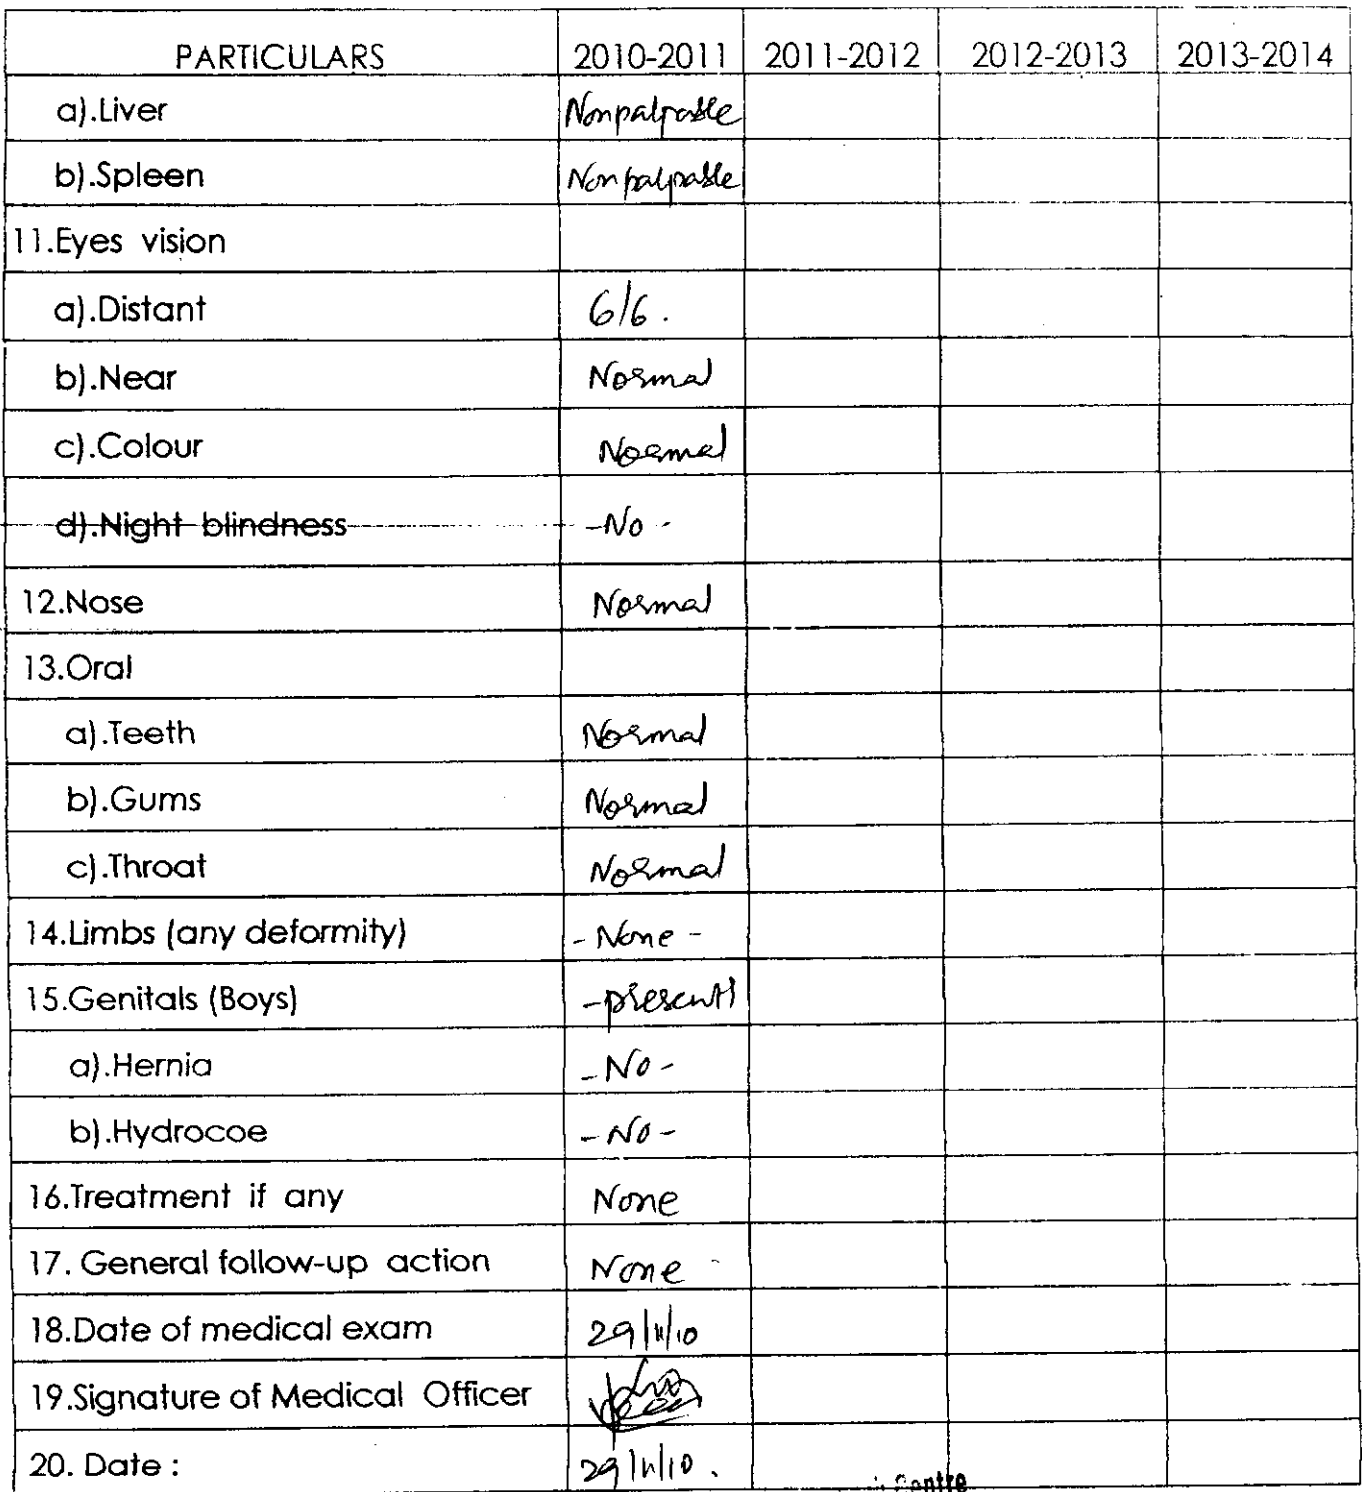 PARTICULARS 2010-2011 2011-2012 2012-2013 2013-2014
a).Liver Nonpalpable
b).Spleen Nonpalpable
11.Eyes vision
a).Distant 6/6.
b).Near Normal
c).Colour Normal
d).Night blindness -No-
12.Nose Normal
13.Oral
a).Teeth Normal
b).Gums Normal
c).Throat Normal
14.Limbs (any deformity) - None -
15.Genitals (Boys) -present
a).Hernia -No-
b).Hydrocoe -No-
16.Treatment if any None
17. General follow-up action None
18.Date of medical exam 29/11/10
19.Signature of Medical Officer
20. Date : 29/11/10.
Centre